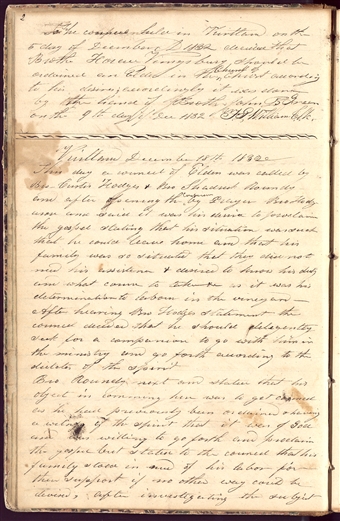 2
At the conference held in Kirtland on the
6 day of December AD 1832 decided that
Broth should be
ordained an Elder in the Church of Christ according
to his desire accordingly it was done
by the hands of Broth John
on the 9th day of Dec 1832 Clk.
Kirtland December 18th 1832
This day a council of Elders was called by
Bro. Curtis Hodges & Bro Shadrach Roundy
and after opening the by Prayer Bro Hodges
arose and said it was his desire to proclaim
the gospel stating that his situation was such
that he could leave home and that his
family was so situated that they did not
need his assistance & desired to know his duty
and what course to take as it was his
determination to labour in the vineyard
After hearing Bro Hodges statement the
council decided that he should diligently
seek for a companion to go with him in
the ministry and go forth according to the
dictates of the spirit
Bro. Roundy next and stated that his
object in comming here was to get council
as he had previously been ordained & having
a witness of the spirit that it was of God
and was willing to go forth and proclaim
the gospel but stated to the council that his
family stood in need of his labor for
their support if no other way could be
devised, after investigating the subject